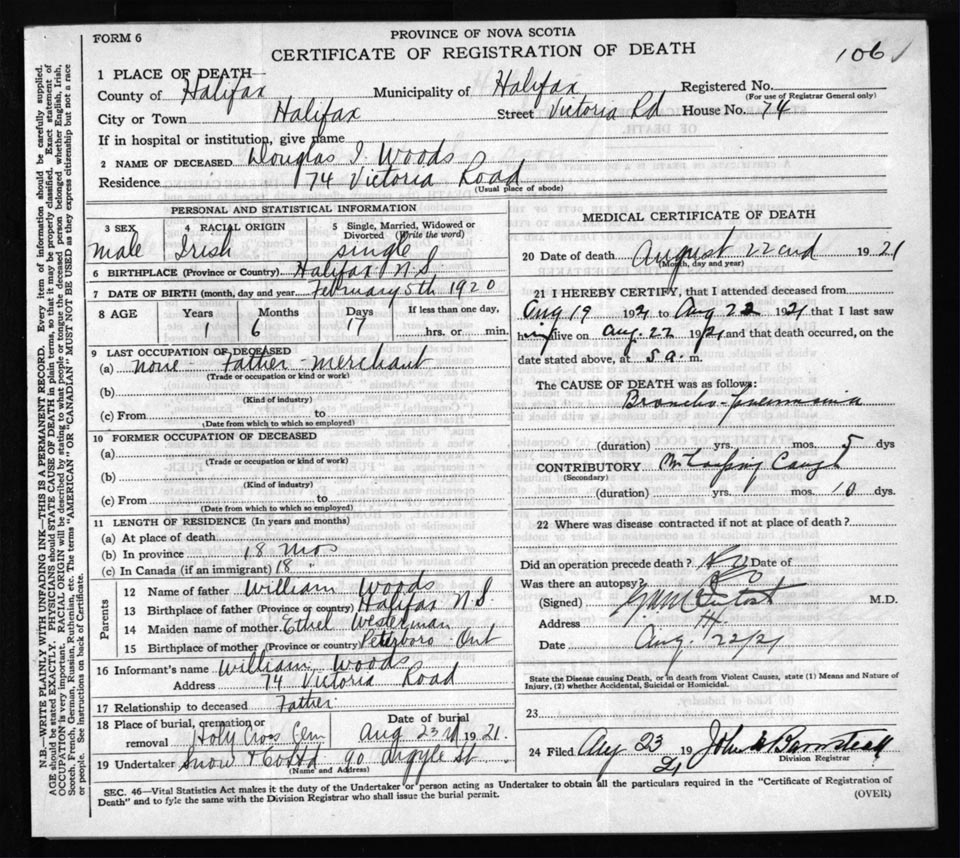 FORM 6
PROVINCE OF NOVA SCOTIA
CERTIFICATE OF REGISTRATION OF DEATH
106
1 PLACE OF DEATH—
County of Halifax Municipality of Halifax Registered No.
(For use of Registrar General only)
City or Town Halifax Street Victoria Rd House No. 74
If in hospital or institution, give name
2 NAME OF DECEASED Douglas I. Woods
Residence 74 Victoria Road
(Usual place of abode)
PERSONAL AND STATISTICAL INFORMATION
3 SEX 4 RACIAL ORIGIN 5 Single, Married, Widowed or Divorced (Write the word)
male Irish single
6 BIRTHPLACE (Province or Country) Halifax N.S.
7 DATE OF BIRTH (month, day and year) February 5th 1920
8 AGE Years Months Days If less than one day,
1 6 17 hrs. or min.
9 LAST OCCUPATION OF DECEASED
(a) none Father - merchant
(Trade or occupation or kind or work)
(b)
(Kind of industry)
(c) From to
(Date from which to which so employed)
10 FORMER OCCUPATION OF DECEASED
(a)
(Trade or occupation or kind of work)
(b)
(Kind of industry)
(c) From to
(Date from which to which so employed)
11 LENGTH OF RESIDENCE (In years and months)
(a) At place of death
(b) In province 18 mos
(c) In Canada (if an immigrant) 18 "
Parents
12 Name of father William Woods
13 Birthplace of father (Province or country) Halifax N.S.
14 Maiden name of mother Ethel Westerman
15 Birthplace of mother (Province or country) Peterboro Ont
16 Informant's name William Woods
Address 74 Victoria Road
17 Relationship to deceased Father
18 Place of burial, cremation or removal Holy Cross Cem Date of burial Aug 23rd 1921.
19 Undertaker Snow & Co Ltd 90 Argyle St
(Name and Address)
MEDICAL CERTIFICATE OF DEATH
20 Date of death August 22nd 1921
(Month, day and year)
21 I HEREBY CERTIFY, that I attended deceased from
Aug 19 1921 to Aug 22 1921 that I last saw
him alive on Aug. 22 1921 and that death occurred, on the
date stated above, at 5 a. m.
The CAUSE OF DEATH was as follows:
Broncho-pneumonia
(duration) yrs. mos. 5 dys
CONTRIBUTORY Whooping Cough
(Secondary)
(duration) yrs. mos. 10 dys.
22 Where was disease contracted if not at place of death?
Did an operation precede death? No Date of
Was there an autopsy? No
(Signed) M.D.
Address
Date Aug. 22/21
State the Disease causing Death, or in death from Violent Causes, state (1) Means and Nature of
Injury, (2) whether Accidental, Suicidal or Homicidal.
23
24 Filed Aug 23 1921 John
Division Registrar
SEC. 46—Vital Statistics Act makes it the duty of the Undertaker or person acting as Undertaker to obtain all the particulars required in the "Certificate of Registration of
Death" and to fyle the same with the Division Registrar who shall issue the burial permit.
(OVER)
N.B.—WRITE PLAINLY WITH UNFADING INK—THIS IS A PERMANENT RECORD. Every item of information should be carefully supplied.
AGE should be stated EXACTLY. PHYSICIANS should STATE CAUSE OF DEATH in plain terms, so that it may be properly classified. Exact statement of
OCCUPATION is very important. RACIAL ORIGIN will be described by stating to what people or tongue the deceased person belonged, whether English, Irish,
Scotch, French, German, Russian, Ruthenian, etc. The terms "AMERICAN" OR "CANADIAN" MUST NOT BE USED as they express citizenship but not a race
or people. See instructions on back of Certificate.